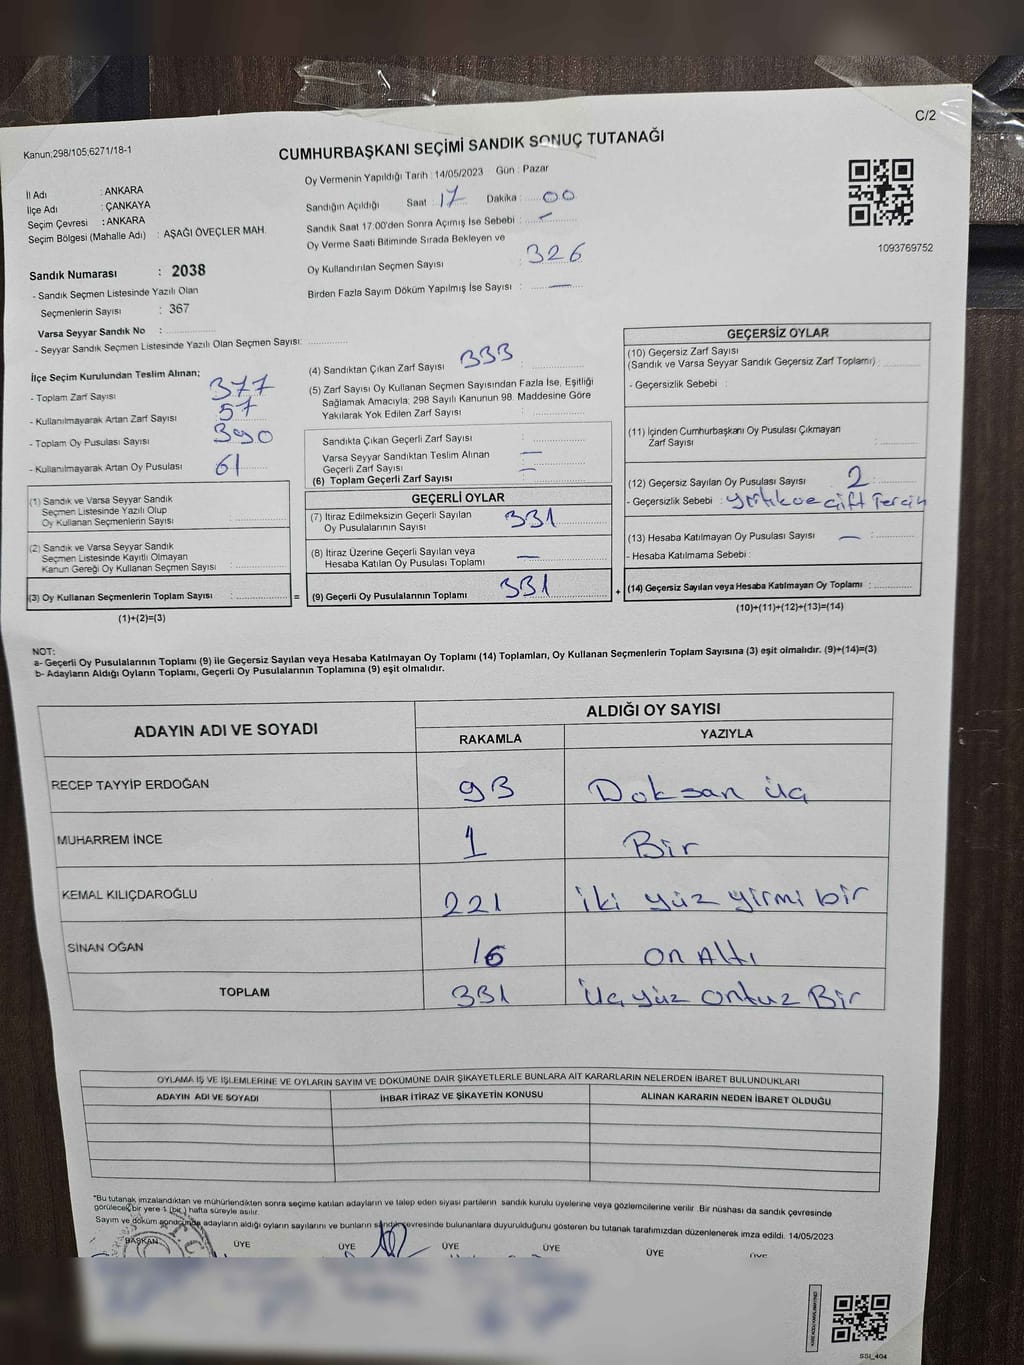 C/2
Kanun,298/105,6271/18-1
CUMHURBAŞKANI SEÇİMİ SANDIK SONUÇ TUTANAĞI
Oy Vermenin Yapıldığı Tarih : 14/05/2023 Gün : Pazar
İl Adı : ANKARA
İlçe Adı : ÇANKAYA
Seçim Çevresi : ANKARA
Seçim Bölgesi (Mahalle Adı) : AŞAĞI ÖVEÇLER MAH.
Sandığın Açıldığı Saat : 17 Dakika : 00
Sandık Saat 17:00'den Sonra Açımış İse Sebebi : –
Oy Verme Saati Bitiminde Sırada Bekleyen ve
Oy Kullandırılan Seçmen Sayısı : 326
Birden Fazla Sayım Döküm Yapılmış İse Sayısı : —
1093769752
Sandık Numarası : 2038
- Sandık Seçmen Listesinde Yazılı Olan
Seçmenlerin Sayısı : 367
Varsa Seyyar Sandık No :
- Seyyar Sandık Seçmen Listesinde Yazılı Olan Seçmen Sayısı:
İlçe Seçim Kurulundan Teslim Alınan;
- Toplam Zarf Sayısı 377
- Kullanılmayarak Artan Zarf Sayısı 57
- Toplam Oy Pusulası Sayısı 390
- Kullanılmayarak Artan Oy Pusulası 61
(1) Sandık ve Varsa Seyyar Sandık
Seçmen Listesinde Yazılı Olup
Oy Kullanan Seçmenlerin Sayısı :
(2) Sandık ve Varsa Seyyar Sandık
Seçmen Listesinde Kayıtlı Olmayan
Kanun Gereği Oy Kullanan Seçmen Sayısı :
(3) Oy Kullanan Seçmenlerin Toplam Sayısı : =
(1)+(2)=(3)
(4) Sandıktan Çıkan Zarf Sayısı 333
(5) Zarf Sayısı Oy Kullanan Seçmen Sayısından Fazla İse, Eşitliği
Sağlamak Amacıyla; 298 Sayılı Kanunun 98. Maddesine Göre
Yakılarak Yok Edilen Zarf Sayısı :
Sandıkta Çıkan Geçerli Zarf Sayısı :
Varsa Seyyar Sandıktan Teslim Alınan
Geçerli Zarf Sayısı : —
(6) Toplam Geçerli Zarf Sayısı : —
GEÇERLİ OYLAR
(7) İtiraz Edilmeksizin Geçerli Sayılan
Oy Pusulalarının Sayısı : 331
(8) İtiraz Üzerine Geçerli Sayılan veya
Hesaba Katılan Oy Pusulası Toplamı : —
(9) Geçerli Oy Pusulalarının Toplamı : 331 +
GEÇERSİZ OYLAR
(10) Geçersiz Zarf Sayısı
(Sandık ve Varsa Seyyar Sandık Geçersiz Zarf Toplamı) :
- Geçersizlik Sebebi :
(11) İçinden Cumhurbaşkanı Oy Pusulası Çıkmayan
Zarf Sayısı :
(12) Geçersiz Sayılan Oy Pusulası Sayısı : 2
- Geçersizlik Sebebi : yırtık ve çift Tercih
(13) Hesaba Katılmayan Oy Pusulası Sayısı : –
- Hesaba Katılmama Sebebi :
(14) Geçersiz Sayılan veya Hesaba Katılmayan Oy Toplamı :
(10)+(11)+(12)+(13)=(14)
NOT:
a- Geçerli Oy Pusulalarının Toplamı (9) ile Geçersiz Sayılan veya Hesaba Katılmayan Oy Toplamı (14) Toplamları, Oy Kullanan Seçmenlerin Toplam Sayısına (3) eşit olmalıdır. (9)+(14)=(3)
b- Adayların Aldığı Oyların Toplamı, Geçerli Oy Pusulalarının Toplamına (9) eşit olmalıdır.
ADAYIN ADI VE SOYADI ALDIĞI OY SAYISI
RAKAMLA YAZIYLA
RECEP TAYYİP ERDOĞAN 93 Doksan üç
MUHARREM İNCE 1 Bir
KEMAL KILIÇDAROĞLU 221 iki yüz yirmi bir
SİNAN OĞAN 16 on Altı
TOPLAM 331 üç yüz ontuz Bir
OYLAMA İŞ VE İŞLEMLERİNE VE OYLARIN SAYIM VE DÖKÜMÜNE DAİR ŞİKAYETLERLE BUNLARA AİT KARARLARIN NELERDEN İBARET BULUNDUKLARI
ADAYIN ADI VE SOYADI İHBAR İTİRAZ VE ŞİKAYETİN KONUSU ALINAN KARARIN NEDEN İBARET OLDUĞU
"Bu tutanak imzalandıktan ve mühürlendikten sonra seçime katılan adayların ve talep eden siyasi partilerin sandık kurulu üyelerine veya gözlemcilerine verilir. Bir nüshası da sandık çevresinde
görülecek bir yere 1 (bir) hafta süreyle asılır.
Sayım ve döküm sonucunda adayların aldığı oyların sayılarını ve bunların sandık çevresinde bulunanlara duyurulduğunu gösteren bu tutanak tarafımızdan düzenlenerek imza edildi. 14/05/2023
BAŞKAN ÜYE ÜYE ÜYE ÜYE ÜYE ÜYE
SSİ_404